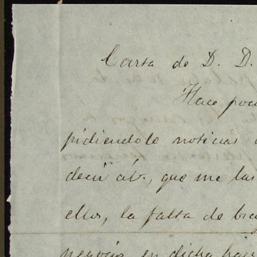 Carta de D. D.
Hace poc
pidiendole noticias
decir á V., que me las
ellos, la falta de bra
negocio en dicha